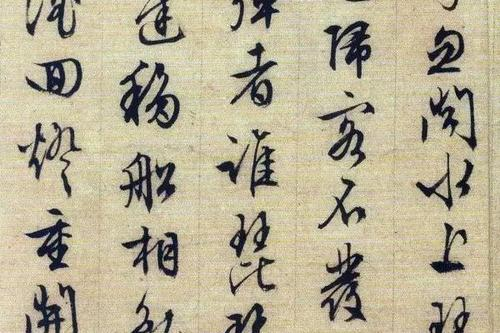 忽聞水上琵
歸客不發
彈者誰琵琶
遲移船相
酒回燈重開